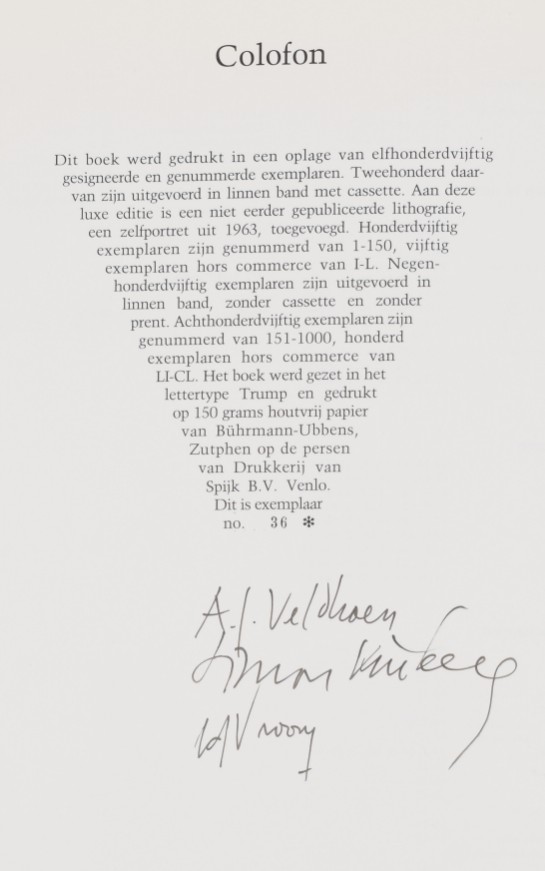 Colofon
Dit boek werd gedrukt in een oplage van elfhonderdvijftig
gesigneerde en genummerde exemplaren. Tweehonderd daar-
van zijn uitgevoerd in linnen band met cassette. Aan deze
luxe editie is een niet eerder gepubliceerde lithografie,
een zelfportret uit 1963, toegevoegd. Honderdvijftig
exemplaren zijn genummerd van 1-150, vijftig
exemplaren hors commerce van I-L. Negen-
honderdvijftig exemplaren zijn uitgevoerd in
linnen band, zonder cassette en zonder
prent. Achthonderdvijftig exemplaren zijn
genummerd van 151-1000, honderd
exemplaren hors commerce van
LI-CL. Het boek werd gezet in het
lettertype Trump en gedrukt
op 150 grams houtvrij papier
van Bührmann-Ubbens,
Zutphen op de persen
van Drukkerij van
Spijk B.V. Venlo.
Dit is exemplaar
no. 36 ✻
A.J. Veldhoen
Simon
Vrooy